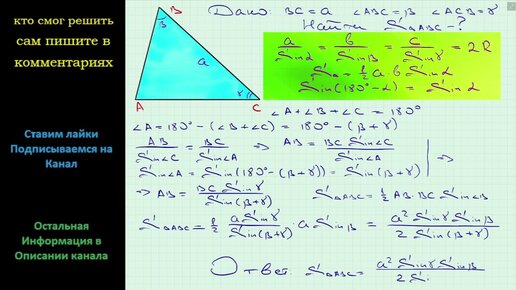 кто смог решить
сам пишите в
комментариях
Ставим лайки
Подписываемся на
Канал
Остальная
Информация в
Описании канала
B
β
a
γ
A
C
Дано: BC=a ∠ABC=β ∠ACB=γ
Найти S△ABC-?
a/Sinα = b/Sinβ = c/Sinγ = 2R
S△ = 1/2 a·b Sinα
Sin(180°-α) = Sinα
∠A+∠B+∠C = 180°
∠A=180°-(∠B+∠C) = 180°-(β+γ)
AB/Sin∠C = BC/Sin∠A ⇒ AB = BC Sin∠C/Sin∠A
Sin∠A = Sin(180°-(β+γ)) = Sin(β+γ) | ⇒
⇒ AB = BC Sinγ/Sin(β+γ) S△ABC = 1/2 AB·BC Sin∠B
S△ABC = 1/2 a Sinγ/Sin(β+γ) a Sinβ = a² Sinγ Sinβ/2 Sin(β+γ)
Ответ: S△ABC = a² Sinγ Sinβ/2 Si